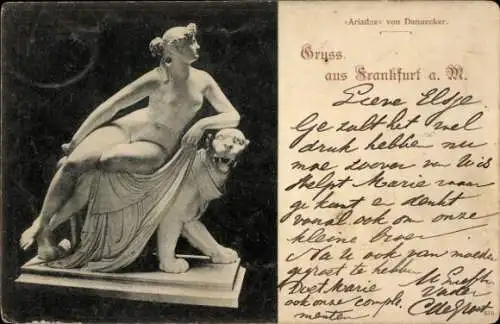 »Ariadne« von Dannecker.
Gruss
aus Frankfurt a. M.
Lieve Elsje
Ge zult het wel
druk hebben nu
moe
Helpt Marie waar
ge kunt en denkt
vooral ook om onze
kleine broer
Na u ook van moeder
gegroet te hebben
Doet Marie
ook onze comple
menten
Vader